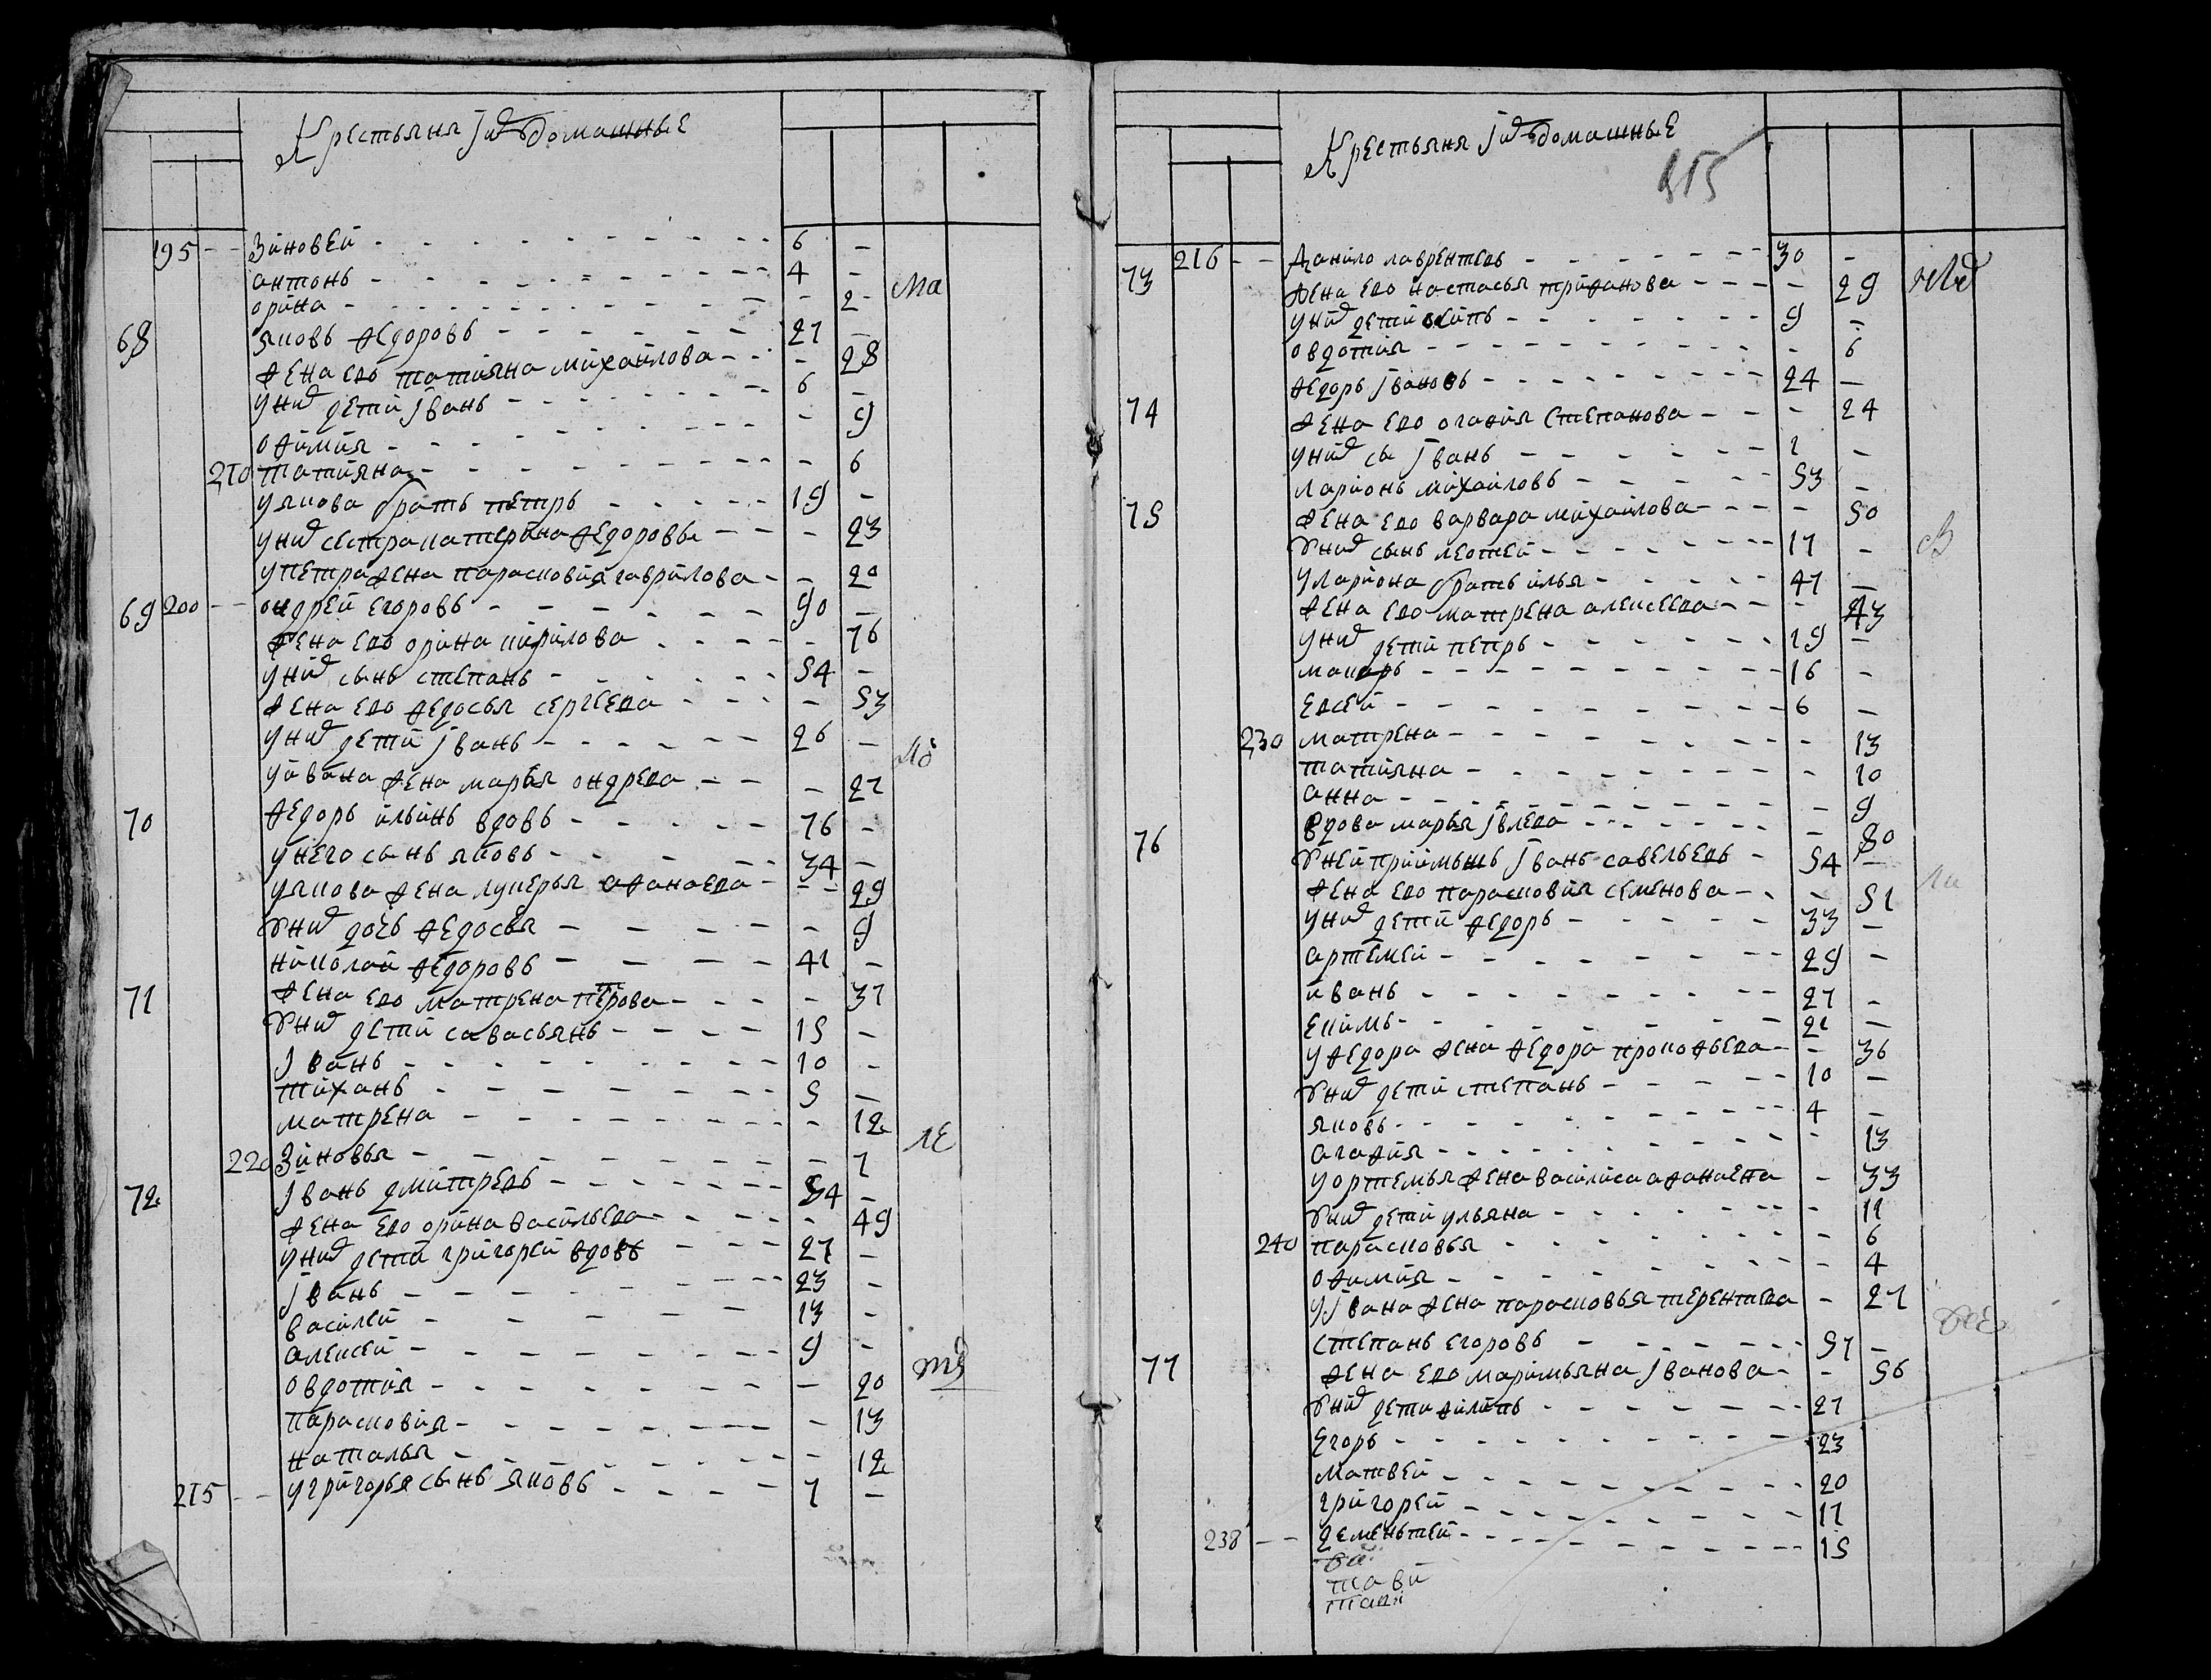 Крестьяня Их домашные
195 - - Зиновей - 6 -
антонъ - 4 - Ма
орина - - 2
68 яковъ федоровъ - 27 -
жена ево татияна михаилова - - 28
у них дети Иванъ - 6 -
офимия - - 9
210 татияна - - 6
у якова братъ петръ - 19 -
у них сестра катерина федоровы - - 23
у петра жена парасковия гаврилова - - 20
69 200 - - ондрей егоровъ - 90 -
жена ево орина кирилова - - 76
у них сынъ степанъ - 54 -
жена ево федосья сергеева - - 53
у них дети Иванъ - 26 -
у ивана жена марья ондрева - - 27
70 федоръ ильинъ вдовъ - 76 -
у него сынъ яковъ - 34 -
у якова жена лукерья афанаева - - 29
у них дочь федосья - - 9
71 николай федоровъ - 41 -
жена ево матрена петрова - - 37
у них дети савасьянъ - 15 -
Иванъ - 10 -
тиханъ - 5 -
матрена - - 12
220 Зиновья - - 7
72 Иванъ дмитревъ - 54 -
жена ево орина васильева - - 49
у них дети григорей вдовъ - 27 -
Иванъ - 23 -
василей - 13 -
алексей - 9 -
овдотия - - 20
парасковия - - 13
наталья - - 12
215 - - у григорья сынъ яковъ - 7 -
Крестьяня Их домашные
215
73 216 - - Данило лаврентевъ - 30 -
жена ево настасья трифанова - - 29
у них дети осипъ - 9 -
овдотия - - 6
74 федоръ Ивановъ - 24 -
жена ево агафия степанова - - 24
у них сы Иванъ - 1 -
75 ларионъ михаиловъ - 53 -
жена ево варвара михаилова - - 50
у них сынъ леонтей - 17 -
у лариона братъ илья - 47 -
жена ево матрена алексеева - - 43
у них дети петръ - 19 -
макаръ - 16 -
евсей - 6 -
230 матрена - - 13
татияна - - 10
анна - - 9
76 вдова марья Ивлева - - 80
у ней приимышъ Иванъ савельевъ - 54 -
жена ево парасковия семенова - - 51
у них дети федоръ - 33 -
артемей - 29 -
иванъ - 27 -
екимъ - 21 -
у федора жена федора прокофьева - - 36
у них дети степанъ - 10 -
яковъ - 4 -
агафия - - 13
у ортемья жена василиса афанасева - 33
у них дети ульяна - - 11
240 парасковья - - 6
офимия - - 4
у Ивана жена парасковья терентева - 27
77 степанъ егоровъ - 57 -
жена ево маримьяна Иванова - - 56
у них дети филипъ - 27
Егоръ - 23
Матвей - 20
григорей - 17
238 - - дементей - 15